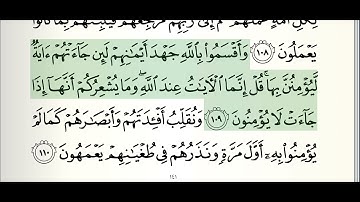 لِكُلِّ أُمَّةٍ عَمَلَهُمْ ثُمَّ إِلَىٰ رَبِّهِم مَّرْجِعُهُمْ فَيُنَبِّئُهُم بِمَا كَانُوا۟
يَعْمَلُونَ ١٠٨ وَأَقْسَمُوا۟ بِٱللَّهِ جَهْدَ أَيْمَٰنِهِمْ لَئِن جَآءَتْهُمْ ءَايَةٌ
لَّيُؤْمِنُنَّ بِهَا ۚ قُلْ إِنَّمَا ٱلْءَايَٰتُ عِندَ ٱللَّهِ ۖ وَمَا يُشْعِرُكُمْ أَنَّهَآ إِذَا
جَآءَتْ لَا يُؤْمِنُونَ ١٠٩ وَنُقَلِّبُ أَفْـِٔدَتَهُمْ وَأَبْصَٰرَهُمْ كَمَا لَمْ
يُؤْمِنُوا۟ بِهِۦٓ أَوَّلَ مَرَّةٍ وَنَذَرُهُمْ فِى طُغْيَٰنِهِمْ يَعْمَهُونَ ١١٠
١٤١